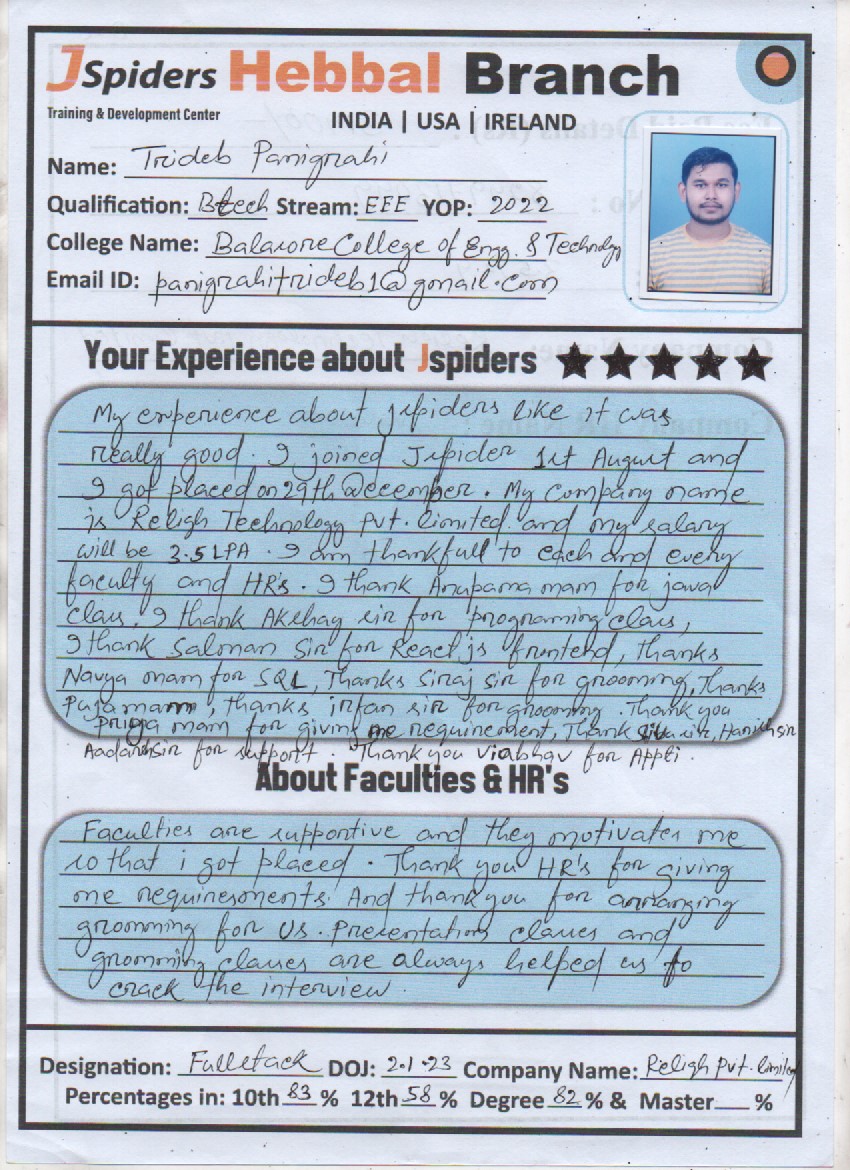 JSpiders Hebbal Branch
Training & Development Center
INDIA | USA | IRELAND
Name: Trideb Panigrahi
Qualification: Btech Stream: EEE YOP: 2022
College Name: Balasore College of Engg. & Technology
Email ID: panigrahitrideb1@gmail.com
Your Experience about Jspiders ★★★★★
My experience about jspiders like it was
really good. I joined Jspider 1st August and
I got placed on 29th December. My company name
is Religh Technology Pvt. limited and my salary
will be 3.5 LPA. I am thankfull to each and every
faculty and HR's. I thank Anupama mam for java
class. I thank Akshay sir for programing class,
I thank Salman Sir for React js frontend, thanks
Navya mam for SQL, Thanks Siraj sir for grooming, Thanks
Puja mam, thanks irfan sir for grooming. Thank you
Priya mam for giving me requirement, Thank sir, Harish sir
Aadarsh sir for support. Thank you Viabhav for Appti.
About Faculties & HR's
Faculties are supportive and they motivates me
so that i got placed. Thank you HR's for giving
me requirements. And thank you for arranging
gromming for us. Presentation classes and
gromming classes are always helped us to
crack the interview.
Designation: Fullstack DOJ: 2.1.23 Company Name: Religh Pvt. limited
Percentages in: 10th 83 % 12th 58 % Degree 82 % & Master %